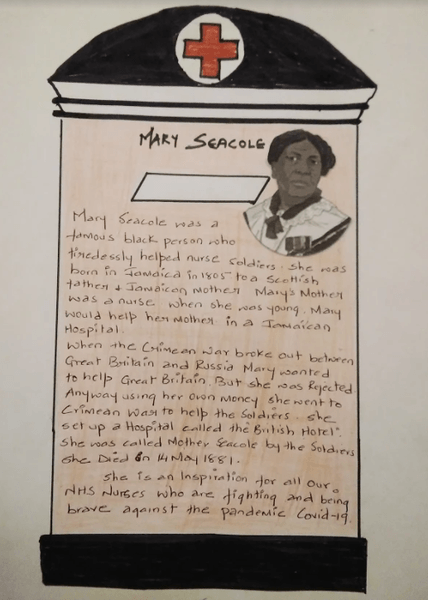 MARY SEACOLE
Mary Seacole was a
famous black person who
tirelessly helped nurse soldiers. she was
born in Jamaica in 1805 to a Scottish
father & Jamaican mother Mary's Mother
was a nurse when she was young. Mary
would help her mother in a Jamaican
Hospital.
When the Crimean War broke out between
Great Britain and Russia Mary wanted
to help Great Britain. But she was Rejected
Anyway using her own money she went to
Crimean War to help the Soldiers. she
set up a Hospital called the British Hotel".
She was called Mother Seacole by the Soldiers
she Died on 14 May 1881.
She is an Inspiration for all Our
NHS Nurses who are fighting and being
brave against the pandemic Covid-19.